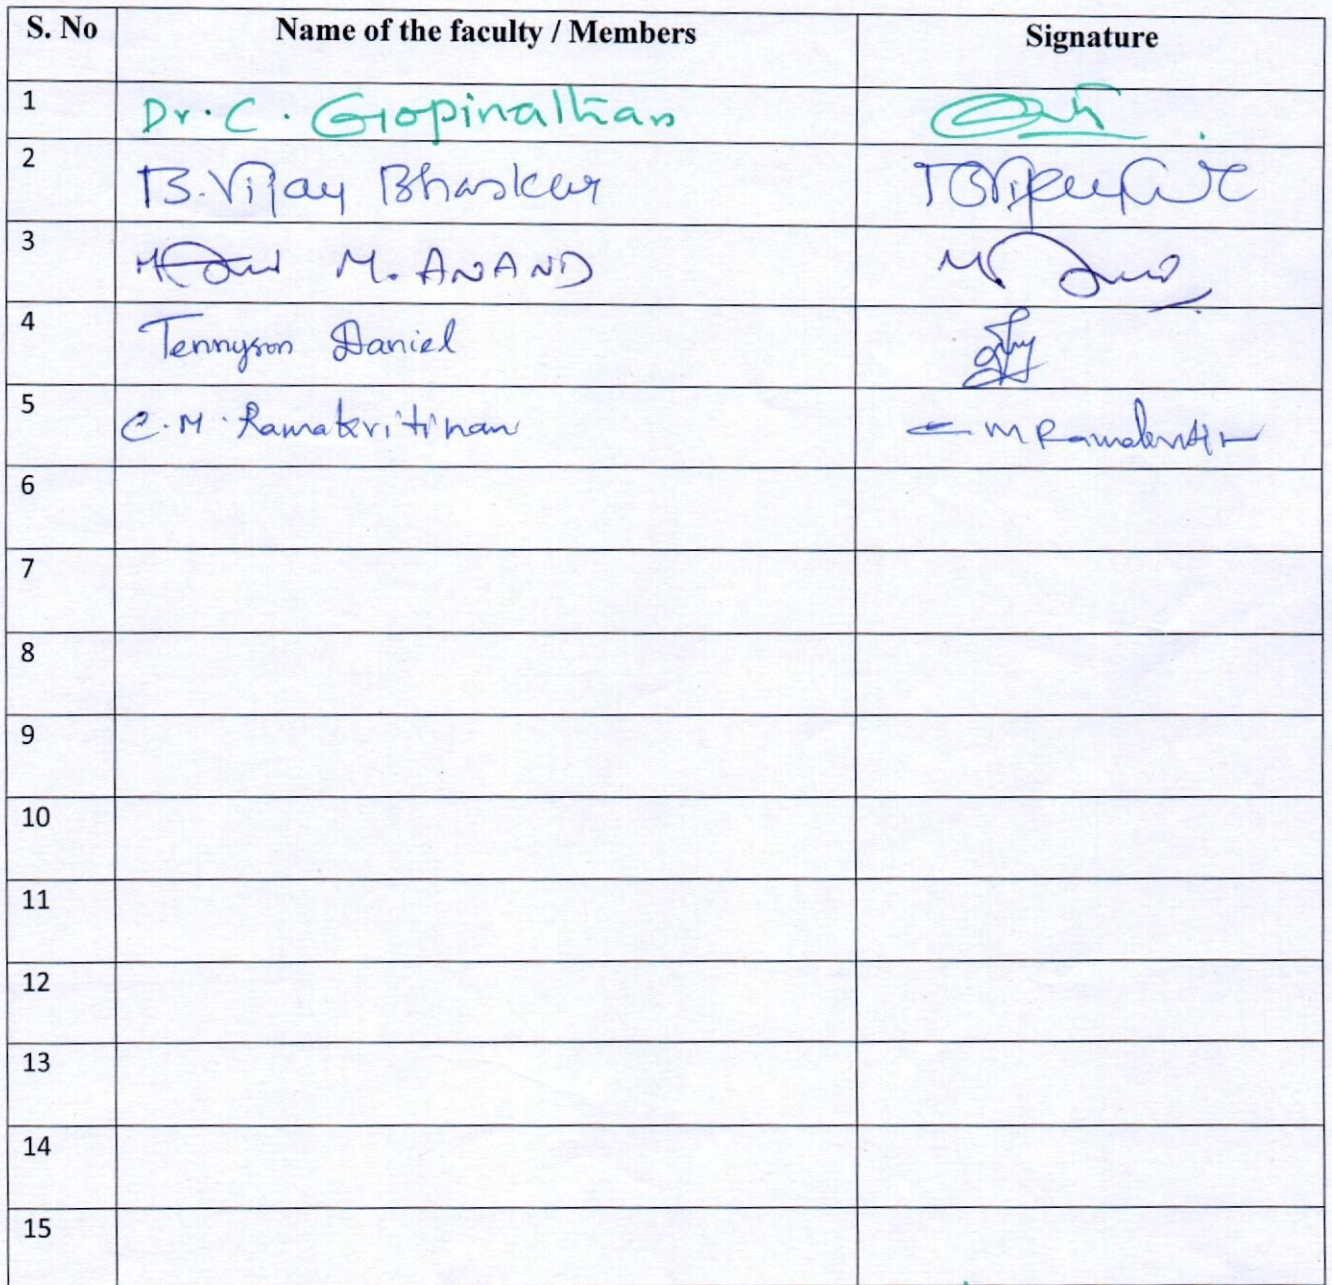 S. No Name of the faculty / Members Signature
1 Dr. C. Gopinathan
2 B. Vijay Bhaskar
3 M. ANAND
4 Tennyson Daniel
5 C. M. Ramakritinan
6
7
8
9
10
11
12
13
14
15